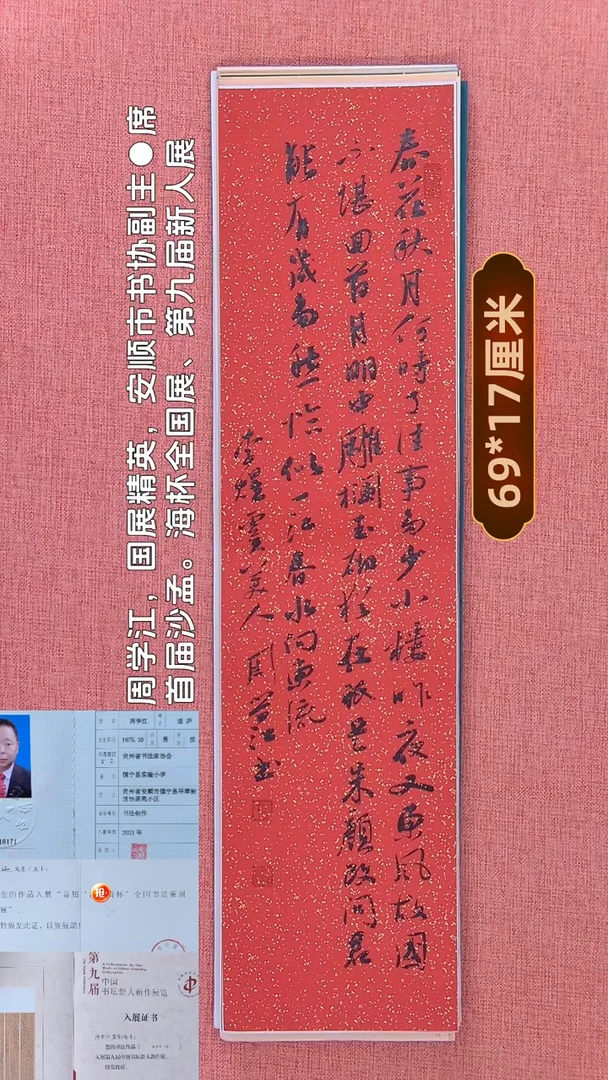 周学江，国展精英，安顺市书协副主●席
首届沙孟。海杯全国展、第九届新人展
69*17厘米
春花秋月何時了往事多少小楼昨夜又东风故國
不堪回首月明中雕欄玉砌应在只是朱颜改问君
能有几多愁恰似一江春水向东流
李煜虞美人 周学江书
周学江
1975.10
男
汉
贵州省书法家协会
镇宁县实验小学
书法创作
2021年
18171
先生/女士:
您的作品入展"首届
杯"全国书法篆刻
展"。
特颁发此证，以资鼓励
抢
第九届
中国
书坛新人新作展览
入展证书
您的书法作品
入展第九届中国书坛新人新作展
特发此证